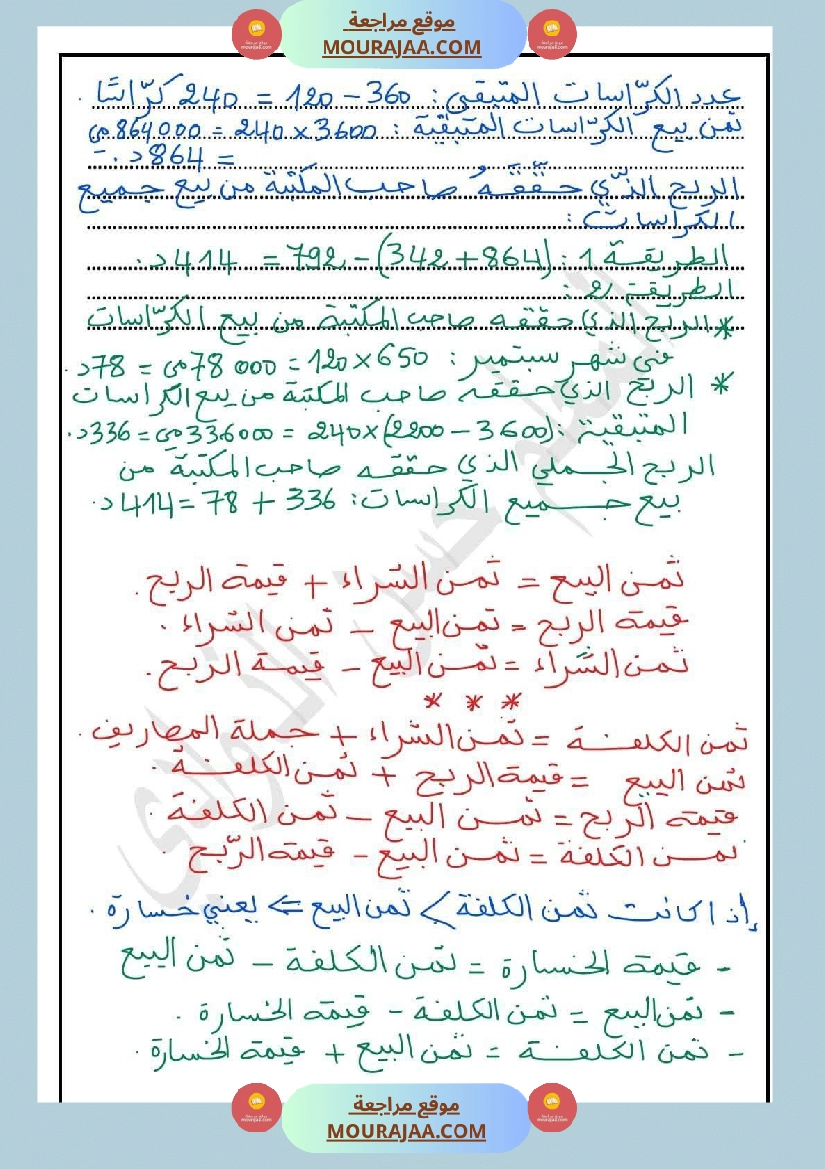 موقع مراجعة
MOURAJAA.COM
عدد الكرّاسات المتبقي: 360 – 120 = 240 كرّاسًا.
ثمن بيع الكرّاسات المتبقية: 3600 × 240 = 864000 مي
= 864 د.
الربح الذّي حقّقهُ صاحب المكتبة من بيع جميع
الكراسات:
الطريقة 1: (864 + 342) – 792 = 414 د.
الطريقة 2:
* الربح الذي حققه صاحب المكتبة من بيع الكرّاسات
في شهر سبتمبر: 650 × 120 = 78 000 مي = 78 د.
* الربح الذي حققه صاحب المكتبة من بيع الكراسات
المتبقية: (3600 – 2200) × 240 = 336000 مي = 336 د.
الربح الجملي الذي حققه صاحب المكتبة من
بيع جميع الكراسات: 336 + 78 = 414 د.
ثمن البيع = ثمن الشراء + قيمة الربح.
قيمة الربح = ثمن البيع – ثمن الشراء.
ثمن الشراء = ثمن البيع – قيمة الربح.
* * *
ثمن الكلفة = ثمن الشراء + جملة المصاريف.
ثمن البيع = قيمة الربح + ثمن الكلفة.
قيمة الربح = ثمن البيع – ثمن الكلفة.
ثمن الكلفة = ثمن البيع – قيمة الرّبح
إذا كانت ثمن الكلفة > ثمن البيع ⇐ يعني خسارة.
- قيمة الخسارة = ثمن الكلفة – ثمن البيع
- ثمن البيع = ثمن الكلفة – قيمة الخسارة.
- ثمن الكلفة = ثمن البيع + قيمة الخسارة.
موقع مراجعة
MOURAJAA.COM